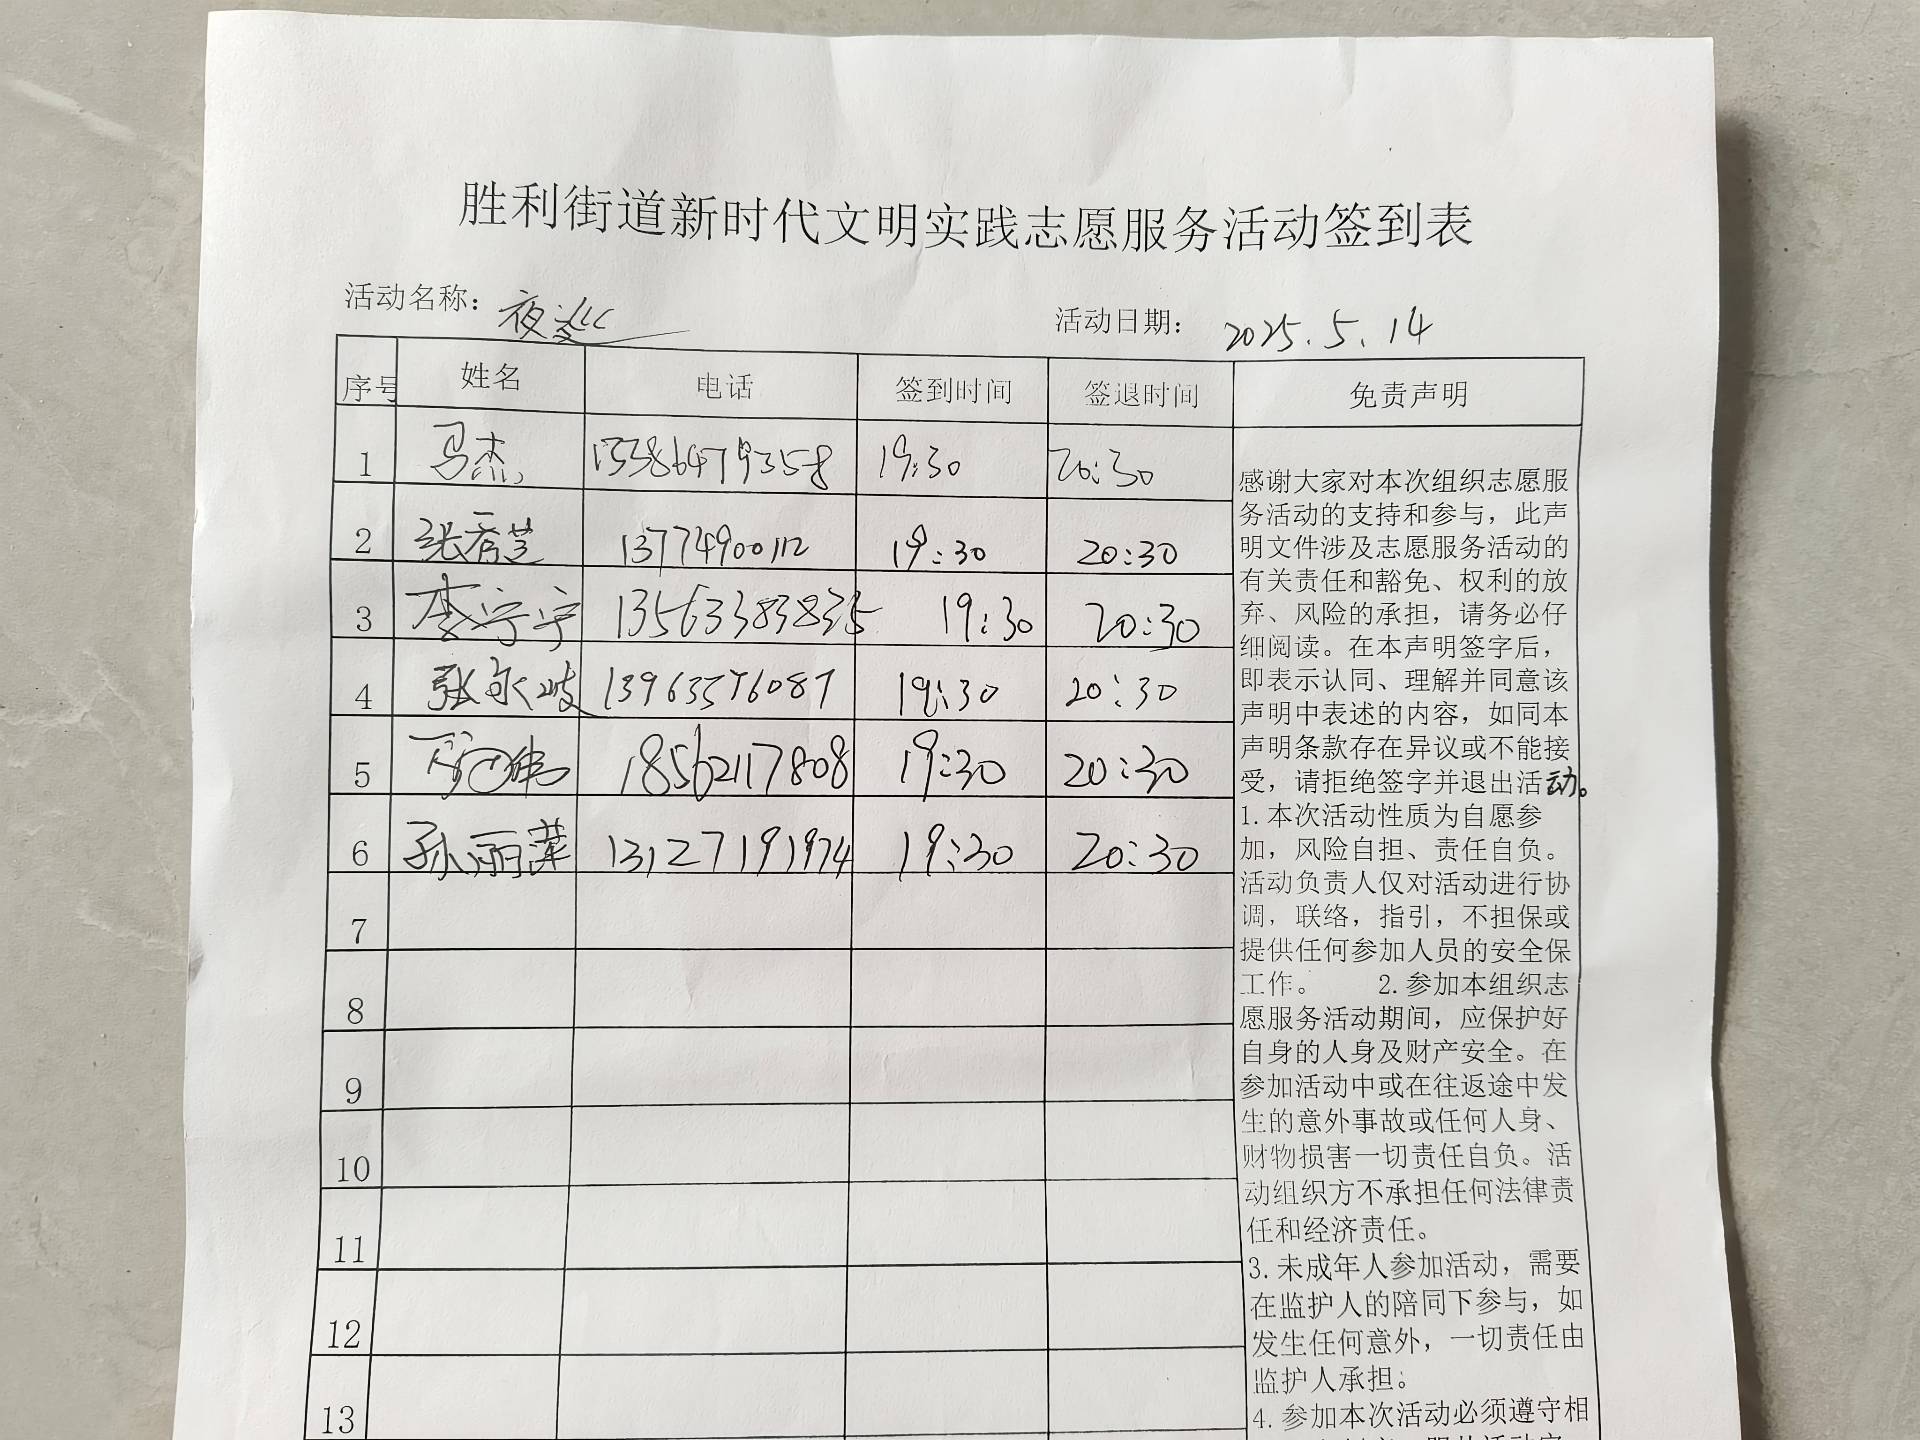 胜利街道新时代文明实践志愿服务活动签到表
活动名称：夜巡 活动日期：2025.5.14
序号 姓名 电话 签到时间 签退时间 免责声明
1 马杰 13386479358 19:30 20:30
2 张秀芝 13774900112 19:30 20:30
3 李宁宁 13563383835 19:30 20:30
4 张永波 13963576087 19:30 20:30
5 18562117808 19:30 20:30
6 孙丽萍 13127191974 19:30 20:30
7
8
9
10
11
12
13
感谢大家对本次组织志愿服
务活动的支持和参与，此声
明文件涉及志愿服务活动的
有关责任和豁免、权利的放
弃、风险的承担，请务必仔
细阅读。在本声明签字后，
即表示认同、理解并同意该
声明中表述的内容，如同本
声明条款存在异议或不能接
受，请拒绝签字并退出活动。
1.本次活动性质为自愿参
加，风险自担、责任自负。
活动负责人仅对活动进行协
调，联络，指引，不担保或
提供任何参加人员的安全保
工作。 2.参加本组织志
愿服务活动期间，应保护好
自身的人身及财产安全。在
参加活动中或在往返途中发
生的意外事故或任何人身、
财物损害一切责任自负。活
动组织方不承担任何法律责
任和经济责任。
3.未成年人参加活动，需要
在监护人的陪同下参与，如
发生任何意外，一切责任由
监护人承担。
4.参加本次活动必须遵守相